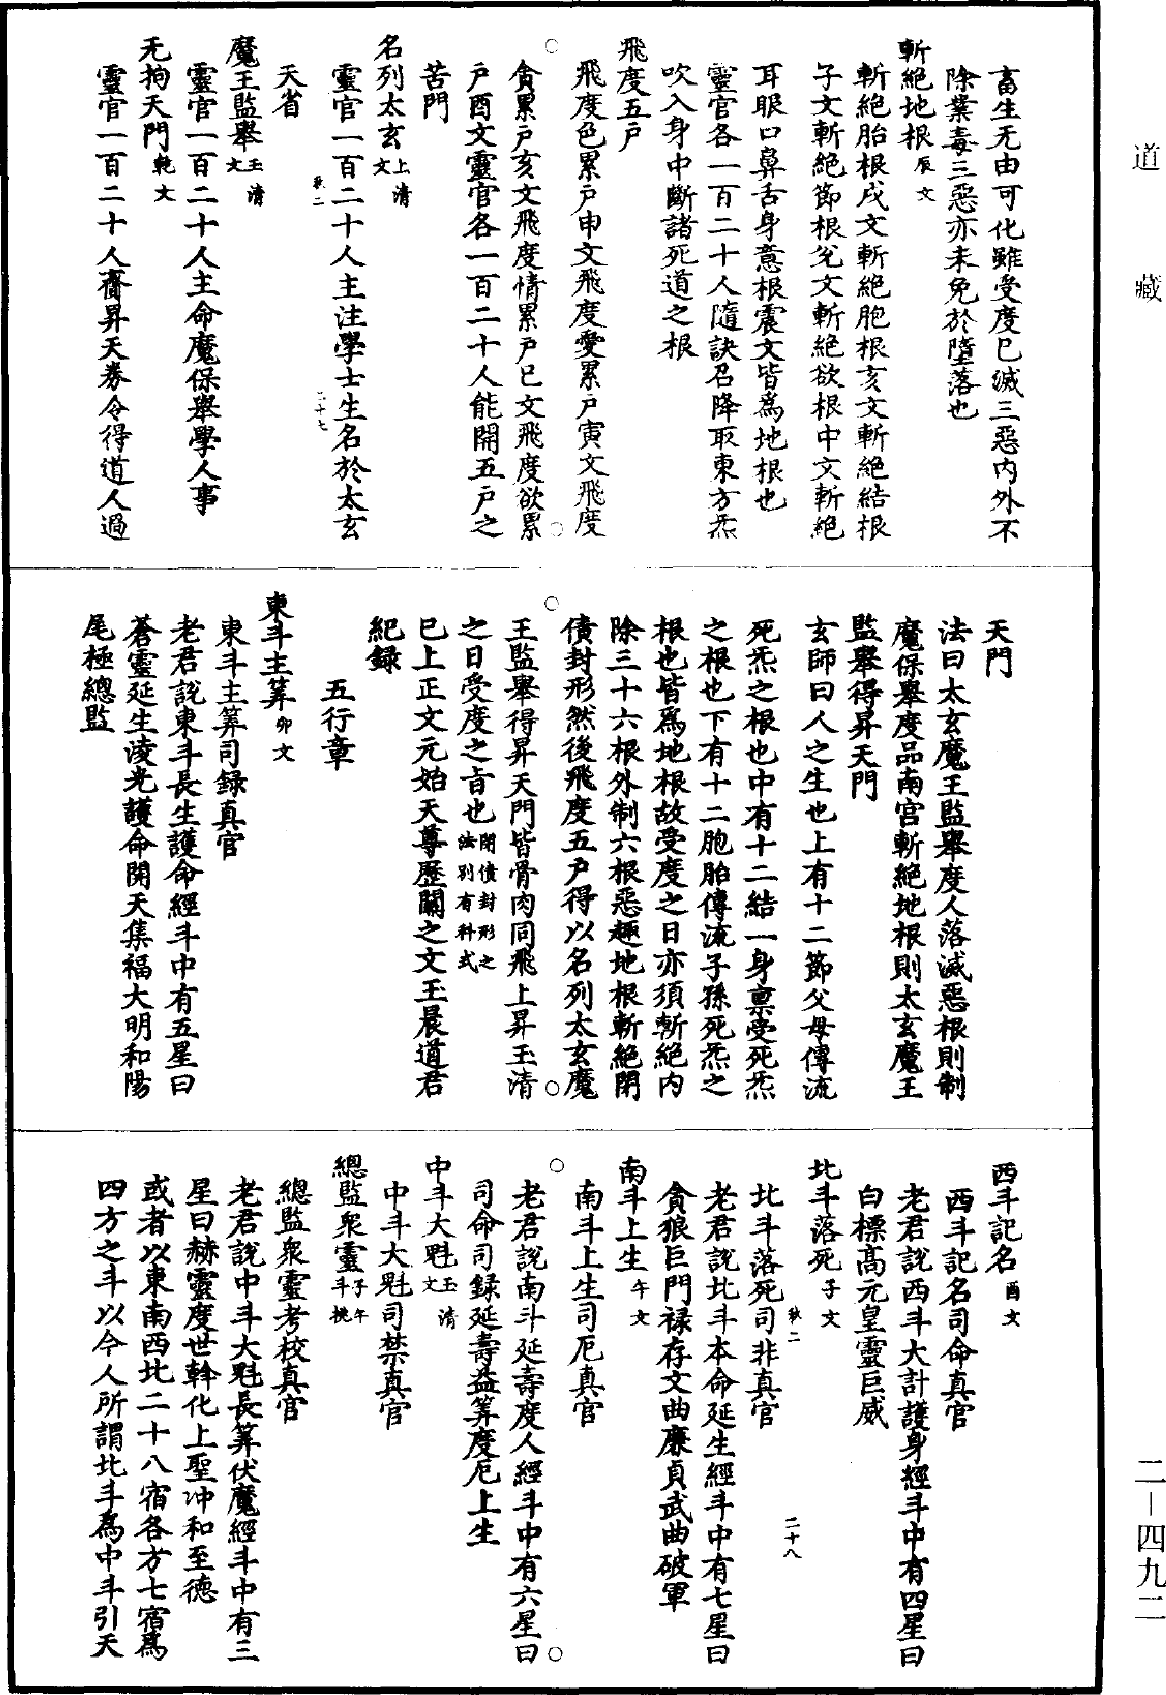 道藏
畜生无由可化雖受度已滅三惡內外不
除業毒三惡亦未免於墮落也
斬絕地根辰文
斬絕胎根戌文斬絕胞根亥文斬絕結根
子文斬絕節根兊文斬絕欲根中文斬絕
耳眼口鼻舌身意根震文皆爲地根也
靈官各一百二十人隨訣召降取東方炁
吹入身中斷諸死道之根
飛度五戶
飛度色累戶申文飛度愛累戶寅文飛度
貪累戶亥文飛度情累戶巳文飛度欲累
戶酉文靈官各一百二十人能開五戶之
苦門
名列太玄上清文
靈官一百二十人主注學士生名於太玄
天省
魔王監舉玉清文
靈官一百二十人主命魔保舉學人事
无拘天門乾文
靈官一百二十人齎昇天券令得道人過
二十七
天門
法曰太玄魔王監舉度人落滅惡根則制
魔保舉度品南宮斬絕地根則太玄魔王
監舉得昇天門
玄師曰人之生也上有十二節父母傳流
死炁之根也中有十二結一身稟受死炁
之根也下有十二胞胎傳流子孫死炁之
根也皆爲地根故受度之日亦須斬絕內
除三十六根外制六根惡趣地根斬絕閉
債封形然後飛度五戶得以名列太玄魔
王監舉得昇天門皆骨肉同飛上昇玉清
之日受度之旨也閉債封形之法別有科式
已上正文元始天尊歷關之文王晨道君
紀錄
五行章
東斗主筭卯文
東斗主筭司錄真官
老君說東斗長生護命經斗中有五星曰
蒼靈延生淩光護命開天集福大明和陽
尾極總監
西斗記名酉文
西斗記名司命真官
老君說西斗大計護身經斗中有四星曰
白標高元皇靈巨威
北斗落死子文
北斗落死司非真官
二十八
老君說北斗本命延生經斗中有七星曰
貪狼巨門祿存文曲廉貞武曲破軍
南斗上生午文
南斗上生司厄真官
老君說南斗延壽度人經斗中有六星曰
司命司錄延壽益筭度厄上生
中斗大魁玉清文
中斗大魁司禁真官
總監衆靈子午斗挑
總監衆靈考校真官
老君說中斗大魁長筭伏魔經斗中有三
星曰赫靈度世斡化上聖冲和至德
或者以東南西北二十八宿各方七宿爲
四方之斗以今人所謂北斗爲中斗引天
二－四九二